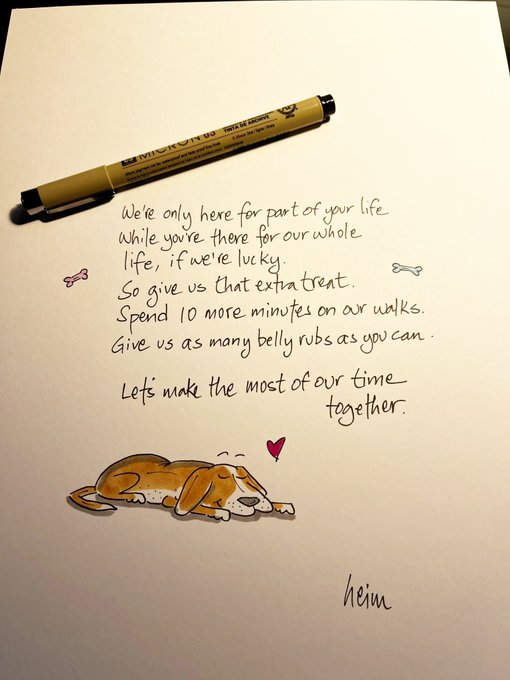 MICRON 05
TINTA DE ARCHIVE
We're only here for part of your life
while you're there for our whole
life, if we're lucky.
So give us that extra treat.
Spend 10 more minutes on our walks.
Give us as many belly rubs as you can.
Let's make the most of our time
together.
heim